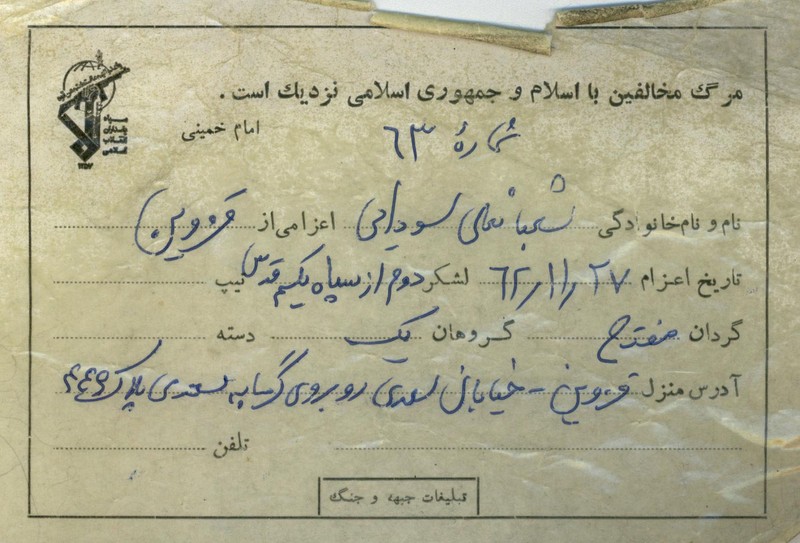 مرگ مخالفین با اسلام و جمهوری اسلامی نزدیک است .
امام خمینی
شمارهٔ ۶۳
نام و نام خانوادگی شعبانعلی سودایی اعزامی از قزوین
تاریخ اعزام ۶۲/۱۱/۲۷ لشکر دوم از سپاه یکم قدس تیپ
گردان مفتح گروهان یک دسته
آدرس منزل قزوین - خیابان سعدی روبروی گرمابه سعدی پلاک ۴۴۹
تلفن
تبلیغات جبهه و جنگ